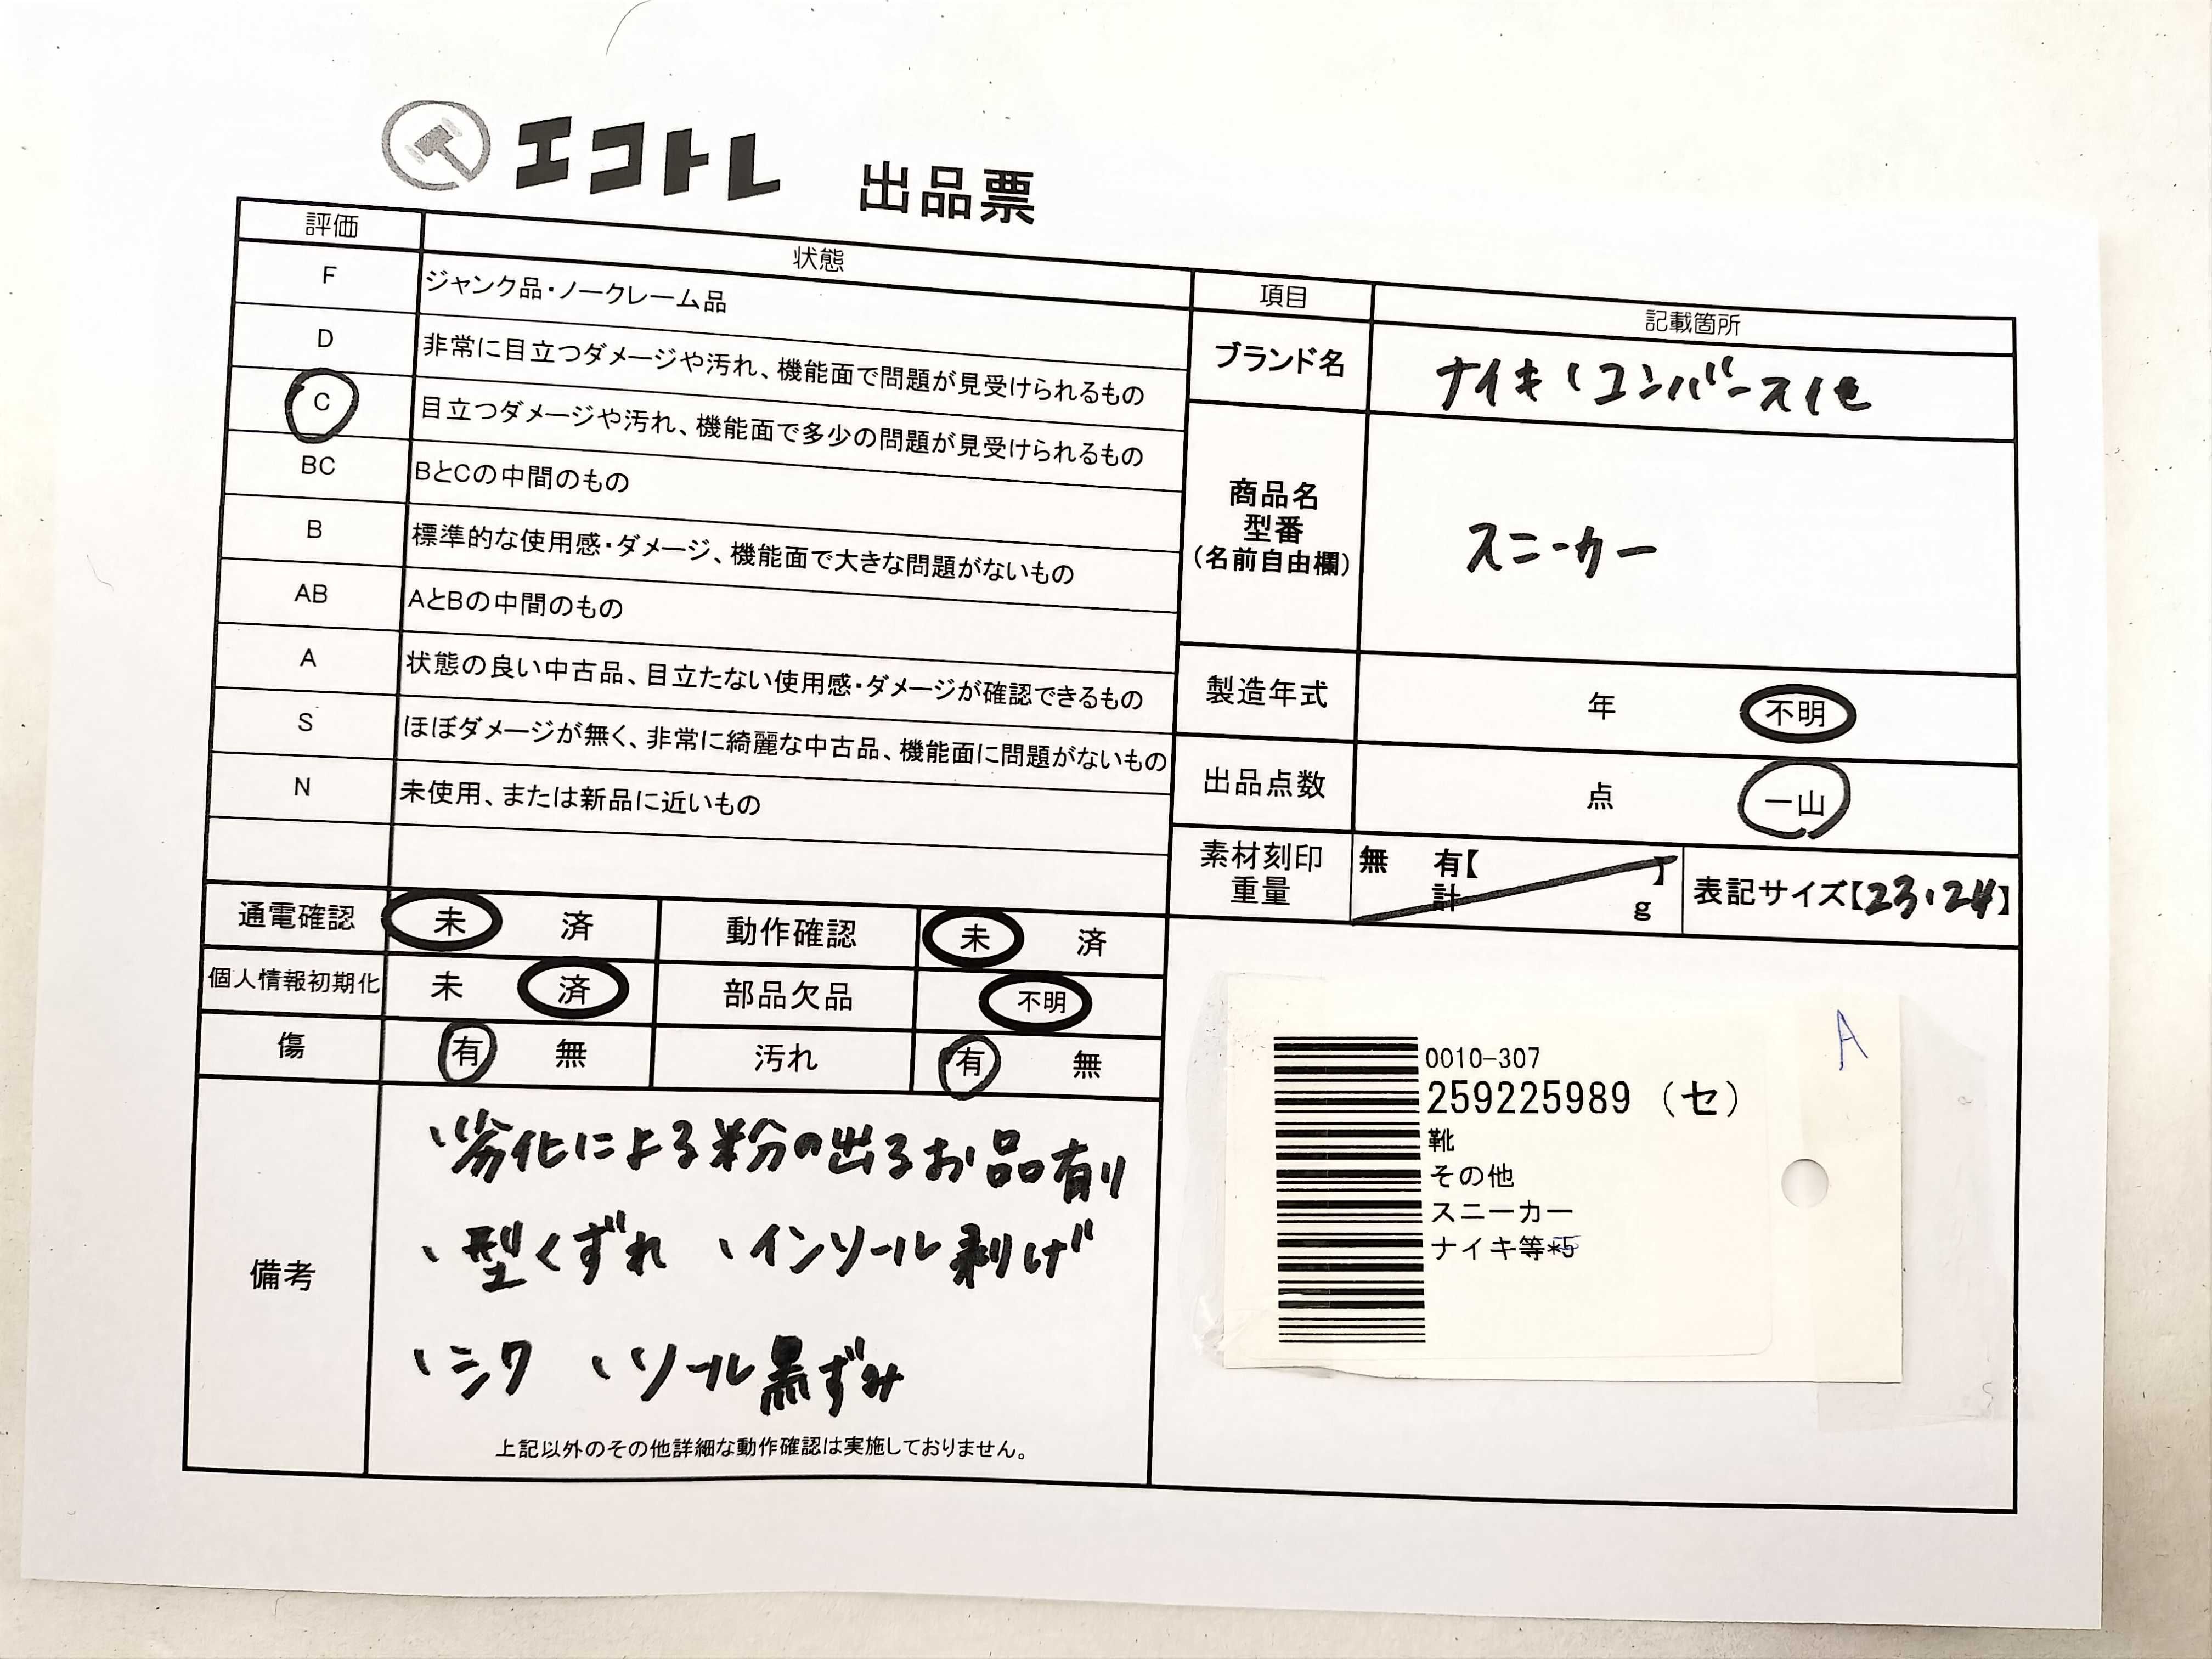 エコトレ 出品票
評価 状態
F ジャンク品・ノークレーム品
D 非常に目立つダメージや汚れ、機能面で問題が見受けられるもの
C 目立つダメージや汚れ、機能面で多少の問題が見受けられるもの
BC BとCの中間のもの
B 標準的な使用感・ダメージ、機能面で大きな問題がないもの
AB AとBの中間のもの
A 状態の良い中古品、目立たない使用感・ダメージが確認できるもの
S ほぼダメージが無く、非常に綺麗な中古品、機能面に問題がないもの
N 未使用、または新品に近いもの
項目 記載箇所
ブランド名 ナイキ、コンバース、他
商品名
型番
(名前自由欄)
スニーカー
製造年式 年 不明
出品点数 点 一山
素材刻印 無 有【 】
重量 計 g
表記サイズ【23、24】
通電確認 未 済 動作確認 未 済
個人情報初期化 未 済 部品欠品 不明
傷 有 無 汚れ 有 無
備考
、劣化による粉の出るお品有り
、型くずれ 、インソール剥げ
、シワ 、ソール黒ずみ
上記以外のその他詳細な動作確認は実施しておりません。
A
0010-307
259225989 (セ)
靴
その他
スニーカー
ナイキ等*5